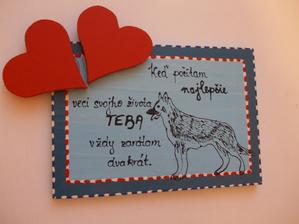 Keď počítam
najlepšie
veci svojho života
TEBA
vždy zarátam
dvakrát.